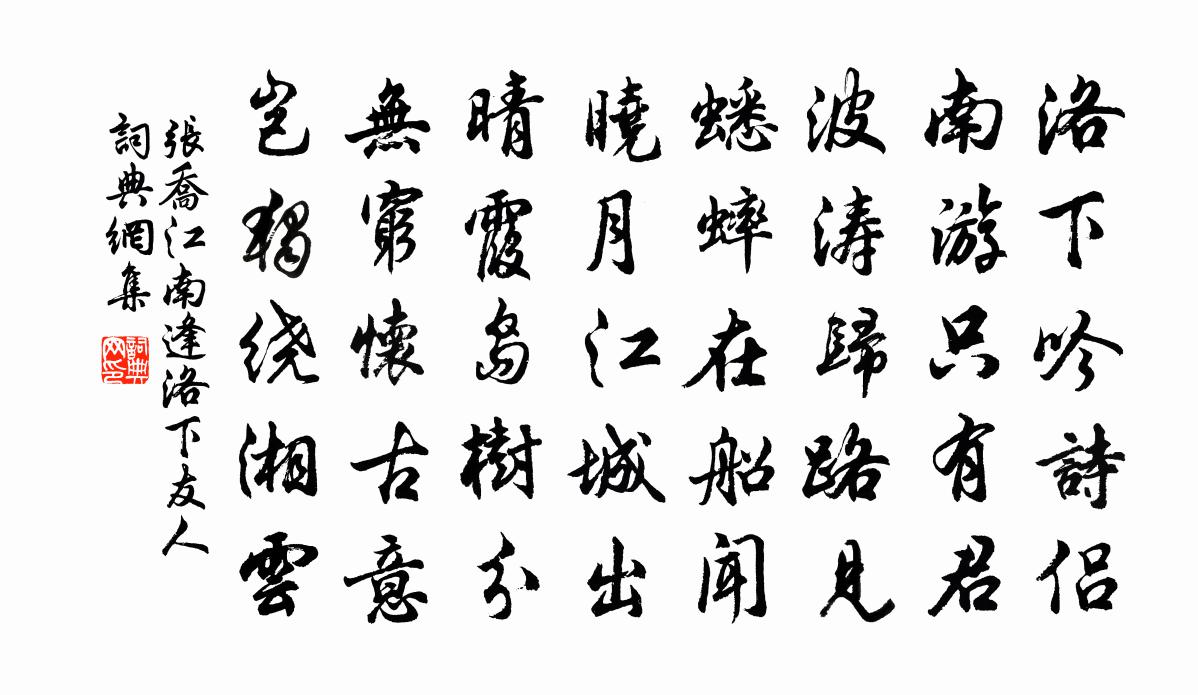 洛下吟詩侣
南游只有君
波涛歸路見
蟋蟀在船聞
曉月江城出
晴霞島樹分
無窮懷古意
岂獨绕湘雲
張喬江南逢洛下友人
詞典網集
詞典网印